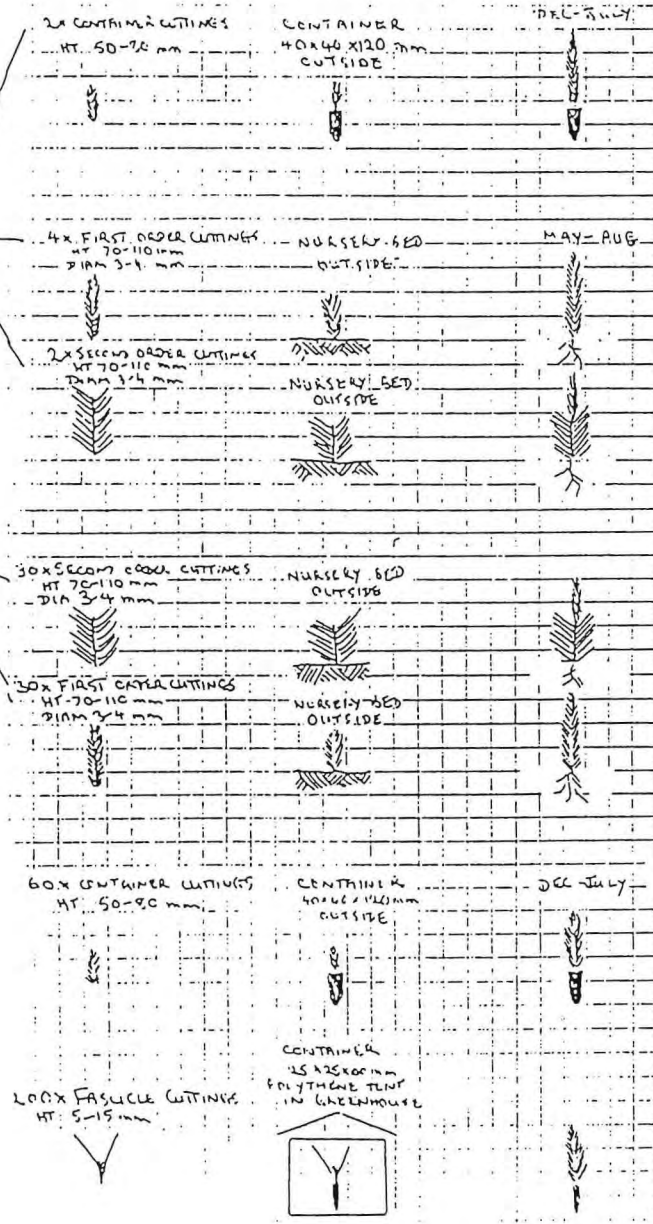 2x CONTAINER CUTTINGS
HT. 50-70 mm
CONTAINER
40x40x120 mm
OUTSIDE
DEC-JULY
4x FIRST ORDER CUTTINGS
HT 70-110 mm
DIAM 3-4 mm
NURSERY BED
OUTSIDE
MAY-AUG
2x SECOND ORDER CUTTINGS
HT 70-110 mm
DIAM 3-4 mm
NURSERY BED
OUTSIDE
30x SECOND ORDER CUTTINGS
HT 70-110 mm
DIA 3-4 mm
NURSERY BED
OUTSIDE
30x FIRST ORDER CUTTINGS
HT-70-110 mm
DIAM 3-4 mm
NURSERY BED
OUTSIDE
60x CONTAINER CUTTINGS
HT 50-80 mm
CONTAINER
40x40x120mm
OUTSIDE
DEC-JULY
200x FASCICLE CUTTINGS
HT. 5-15 mm
CONTAINER
mm
POLYTHENE TENT
IN GREENHOUSE